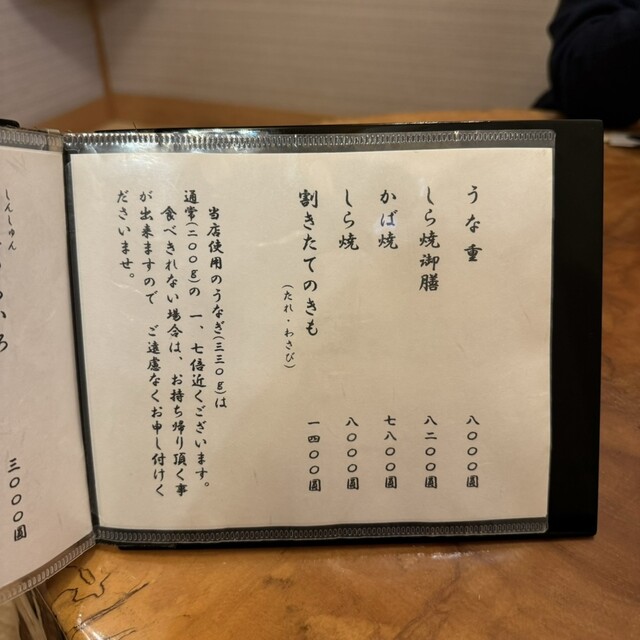 うな重 八〇〇〇圓
しら焼御膳 八二〇〇圓
かば焼 七八〇〇圓
しら焼 八〇〇〇圓
割きたてのきも 一四〇〇圓
(たれ・わさび)
当店使用のうなぎ(三三〇g)は
通常(二〇〇g)の 一、七倍近くございます。
食べきれない場合は、お持ち帰り頂く事
が出来ますので ご遠慮なくお申し付けく
ださいませ。
しんしゅん
三〇〇〇圓